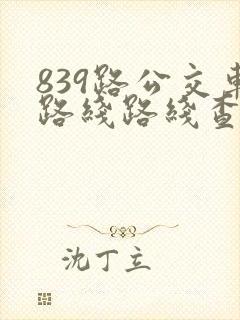 839路公交车
路线路线查
沈丁立